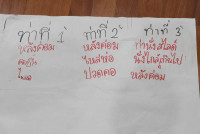 ท่าที่ 1
ท่าที่ 2
ท่าที่ 3
หลังค่อม
หลังค่อม
ท่านั่งสไลด์
ไหล่ห่อ
นั่งไกลเกินไป
ปวดคอ
หลังค่อม